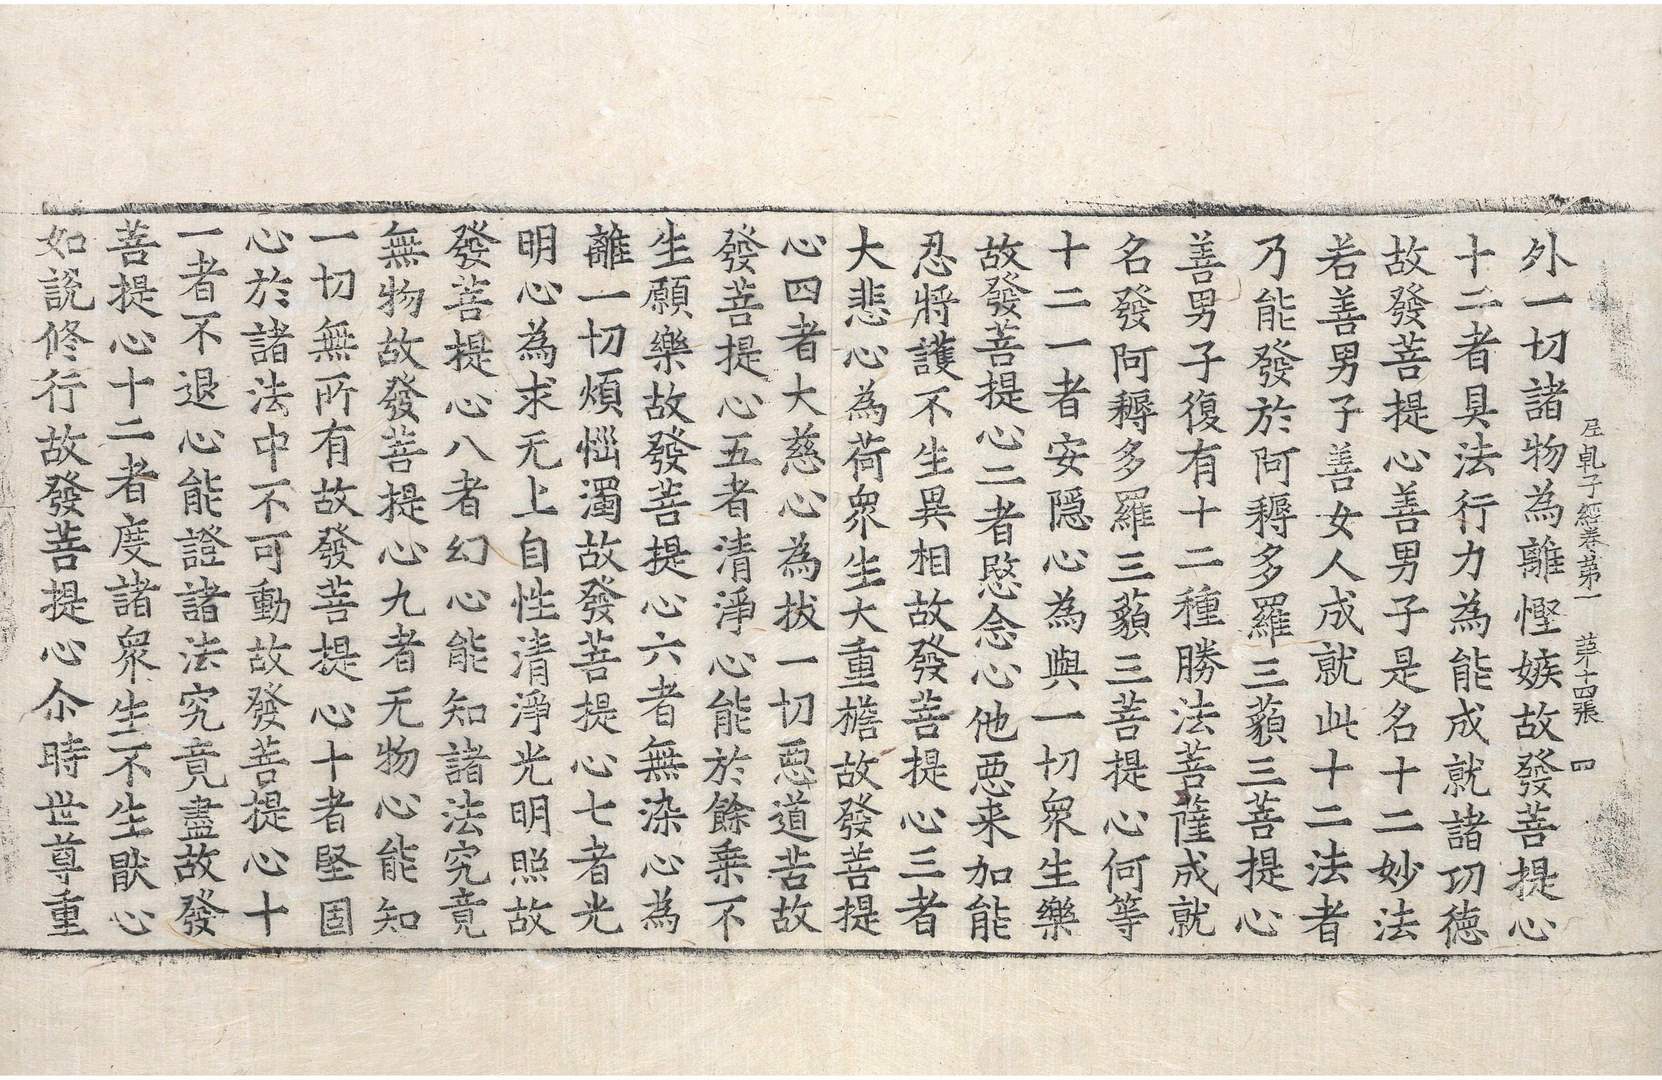 尼乹子經卷第一　苐十四張　四
外一切諸物為離慳嫉故發菩提心
十二者具法行力為能成就諸功德
故發菩提心善男子是名十二妙法
若善男子善女人成就此十二法者
乃能發於阿耨多羅三藐三菩提心
善男子復有十二種勝法菩薩成就
名發阿耨多羅三藐三菩提心何等
十二一者安隱心為與一切衆生樂
故發菩提心二者愍念心他惡来加能
忍將護不生異相故發菩提心三者
大悲心為荷衆生大重檐故發菩提
心四者大慈心為拔一切惡道苦故
發菩提心五者清淨心能於餘乗不
生願樂故發菩提心六者無染心為
離一切煩惱濁故發菩提心七者光
明心為求无上自性清淨光明照故
發菩提心八者幻心能知諸法究竟
無物故發菩提心九者无物心能知
一切無所有故發菩提心十者堅固
心於諸法中不可動故發菩提心十
一者不退心能證諸法究竟盡故發
菩提心十二者度諸衆生不生猒心
如說修行故發菩提心尒時世尊重